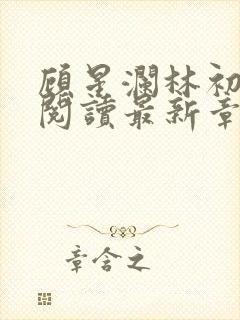 顧星瀾林初
閱讀最新章
章含之